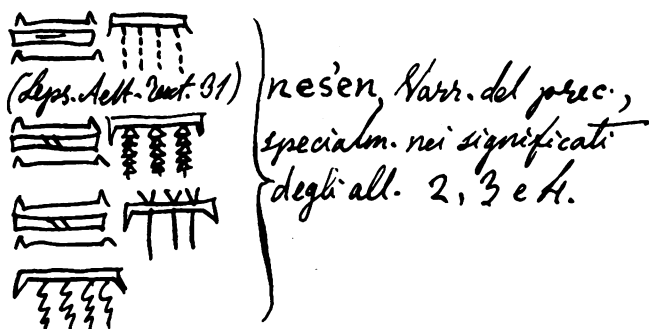 (Leps. Aelt. Text. 31)
nes'en, Varr. del prec.,
specialm. nei significati
degli all. 2, 3 e 4.